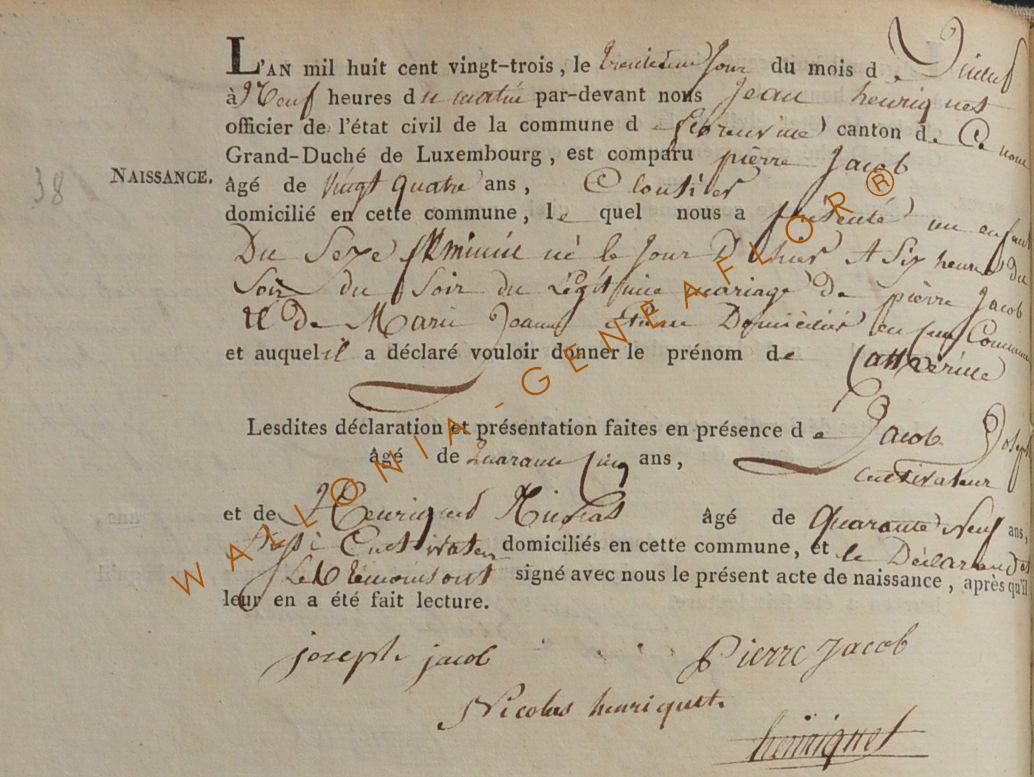 38
NAISSANCE.
L'AN mil huit cent vingt-trois, le jour du mois d
à Neuf heures du matin par-devant nous Jean henriquet
officier de l'état civil de la commune de canton de Ce nom
Grand-Duché de Luxembourg, est comparu pierre Jacob
âgé de Vingt quatre ans, Cloutier
domicilié en cette commune, le quel nous a présenté un enfant
Du Sexe féminin né le Jour D'hier A Six heures du
Soir du Soir du Légitime mariage de pierre Jacob
et De Marie Jeanne Domiciliés en Commune
et auquel il a déclaré vouloir donner le prénom de Catherine
Lesdites déclaration et présentation faites en présence de Jacob Joseph
âgé de Quarante Cinq ans, cultivateur
et de Henriquet Nicolas âgé de Quarante Neuf ans,
Aussi Cultivateur domiciliés en cette commune, et le Déclarant et
Les témoins ont signé avec nous le présent acte de naissance, après qu'il
leur en a été fait lecture.
joseph jacob
Pierre Jacob
Nicolas henriquet
henriquet
WALLONIA-GENEAFLOR®